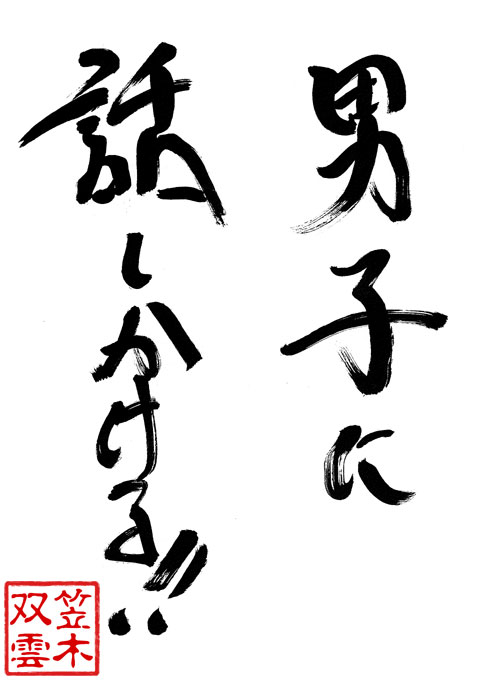 男子に
話しかける!!
笠木
双雲